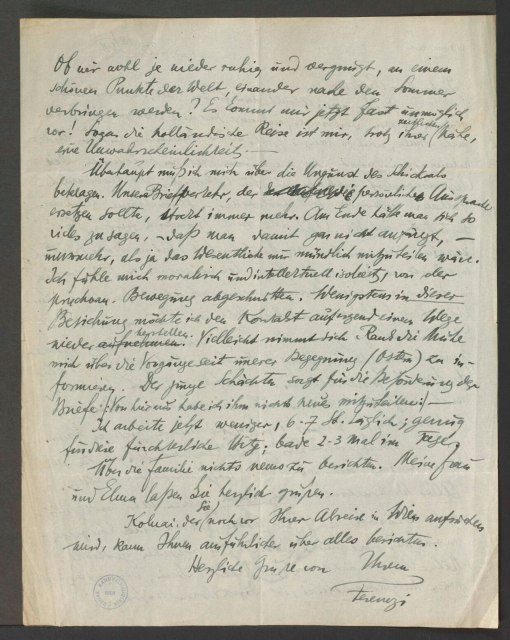 Ob wir wohl je wieder ruhig und vergnügt, an einem
schönen Punkte der Welt, einander nahe den Sommer
verbringen werden? Es kommt mir jetzt fast unmöglich
vor! Sogar die holländische Reise ist mir, trotz ihrer zeitlichen Nähe,
eine Unwahrscheinlichkeit. —
Überhaupt muß ich mich über die Ungunst des Schicksals
beklagen. Unser Briefverkehr, der die persönliche Aussprache
ersetzen sollte, stockt immer mehr. Am Ende hätte man sich so
vieles zu sagen, – daß man damit gar nicht anfängt, –
umsomehr, als ja das Wesentliche nur mündlich mitzuteilen wäre.
Ich fühle mich moralisch und intellektuell isoliert, von der
psychoan. Bewegung abgeschnitten. Wenigstens in dieser
Beziehung möchte ich den Kontakt auf irgend einem Wege
wieder aufnehmen herstellen. Vielleicht nimmt sich Rank die Mühe
mich über die Vorgänge seit unserer Begegnung (Ostern) zu in-
formieren. Der junge Schächter sorgt für die Beförderung der
Briefe. (Von hier aus habe ich ihm nichts neues mitzuteilen.) —
Ich arbeite jetzt weniger, 6-7 St. täglich; genug
für diese fürchterliche Hitze; bade 2-3 mal im Tage.
Über die Familie nichts neues zu berichten. Meine Frau
und Elma laßen Sie herzlich grüßen.
Kolnai, der Sie noch vor Ihrer Abreise in Wien aufsuchen
wird, kann Ihnen ausführlicher über alles berichten.
Herzliche Grüße von Ihrem
Ferenczi